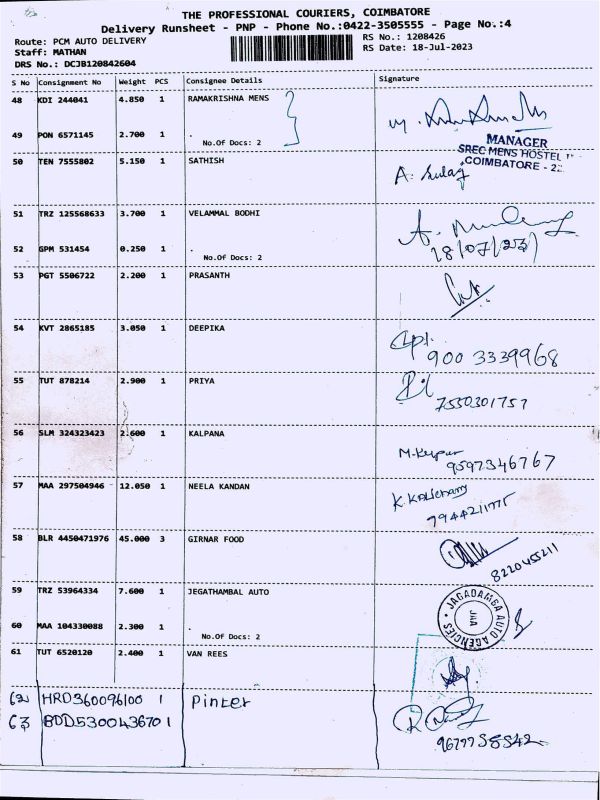 THE PROFESSIONAL COURIERS, COIMBATORE
Delivery Runsheet - PNP - Phone No.:0422-3505555 - Page No.:4
Route: PCM AUTO DELIVERY
RS No.: 1208426
Staff: MATHAN
RS Date: 18-Jul-2023
DRS No.: DCJB120842604
S No Consignment No Weight PCS Consignee Details Signature
48 KDI 244041 4.850 1 RAMAKRISHNA MENS
49 PON 6571145 2.700 1 .
No.Of Docs: 2
MANAGER
SREC MENS HOSTEL
COIMBATORE - 22.
50 TEN 7555802 5.150 1 SATHISH
51 TRZ 125568633 3.700 1 VELAMMAL BODHI
52 GPM 531454 0.250 1 .
No.Of Docs: 2
18/07/23
53 PGT 5506722 2.200 1 PRASANTH
54 KVT 2865185 3.050 1 DEEPIKA
900 3339968
55 TUT 878214 2.900 1 PRIYA
7550301757
56 SLM 324323423 2.600 1 KALPANA
9597346767
57 MAA 297504946 12.050 1 NEELA KANDAN
58 BLR 4450471976 45.000 3 GIRNAR FOOD
8220455211
59 TRZ 53964334 7.600 1 JEGATHAMBAL AUTO
JAGADAMBA AUTO AGENCIES
60 MAA 104330088 2.300 1 .
No.Of Docs: 2
61 TUT 6520120 2.400 1 VAN REES
HRD360096100 1 Pinter
63 BDD530043670 1